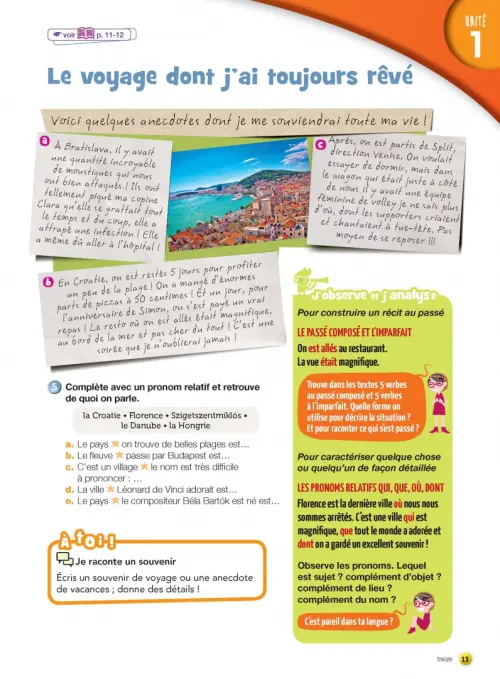 voir p. 11-12
UNITÉ
1
Le voyage dont j'ai toujours rêvé
Voici quelques anecdotes dont je me souviendrai toute ma vie !
a À Bratislava, il y avait
une quantité incroyable
de moustiques qui nous
ont bien attaqués ! Ils ont
tellement piqué ma copine
Clara qu'elle se grattait tout
le temps et du coup, elle a
attrapé une infection ! Elle
a même dû aller à l'hôpital !
c Après, on est partis de Split,
direction Venise. On voulait
essayer de dormir, mais dans
le wagon qui était juste à côté
de nous il y avait une équipe
féminine de volley je ne sais plus
d'où, dont les supporters criaient
et chantaient à tue-tête. Pas
moyen de se reposer !!!
b En Croatie, on est restés 5 jours pour profiter
un peu de la plage ! On a mangé d'énormes
parts de pizzas à 50 centimes ! Et un jour, pour
l'anniversaire de Simon, on s'est payé un vrai
repas ! Le resto où on est allés était magnifique,
au bord de la mer et pas cher du tout ! C'est une
soirée que je n'oublierai jamais !
5 Complète avec un pronom relatif et retrouve
de quoi on parle.
la Croatie • Florence • Szigetszentmiklós •
le Danube • la Hongrie
a. Le pays ★ on trouve de belles plages est…
b. Le fleuve ★ passe par Budapest est…
c. C'est un village ★ le nom est très difficile
à prononcer : …
d. La ville ★ Léonard de Vinci adorait est…
e. Le pays ★ le compositeur Béla Bartók est né est…
À toi !
Je raconte un souvenir
Écris un souvenir de voyage ou une anecdote
de vacances ; donne des détails !
J'observe et j'analyse
Pour construire un récit au passé
LE PASSÉ COMPOSÉ ET L'IMPARFAIT
On est allés au restaurant.
La vue était magnifique.
Trouve dans les textes 5 verbes
au passé composé et 5 verbes
à l'imparfait. Quelle forme on
utilise pour décrire la situation ?
Et pour raconter ce qui s'est passé ?
Pour caractériser quelque chose
ou quelqu'un de façon détaillée
LES PRONOMS RELATIFS QUI, QUE, OÙ, DONT
Florence est la dernière ville où nous nous
sommes arrêtés. C'est une ville qui est
magnifique, que tout le monde a adorée et
dont on a gardé un excellent souvenir !
Observe les pronoms. Lequel
est sujet ? complément d'objet ?
complément de lieu ?
complément du nom ?
C'est pareil dans ta langue ?
treize 13